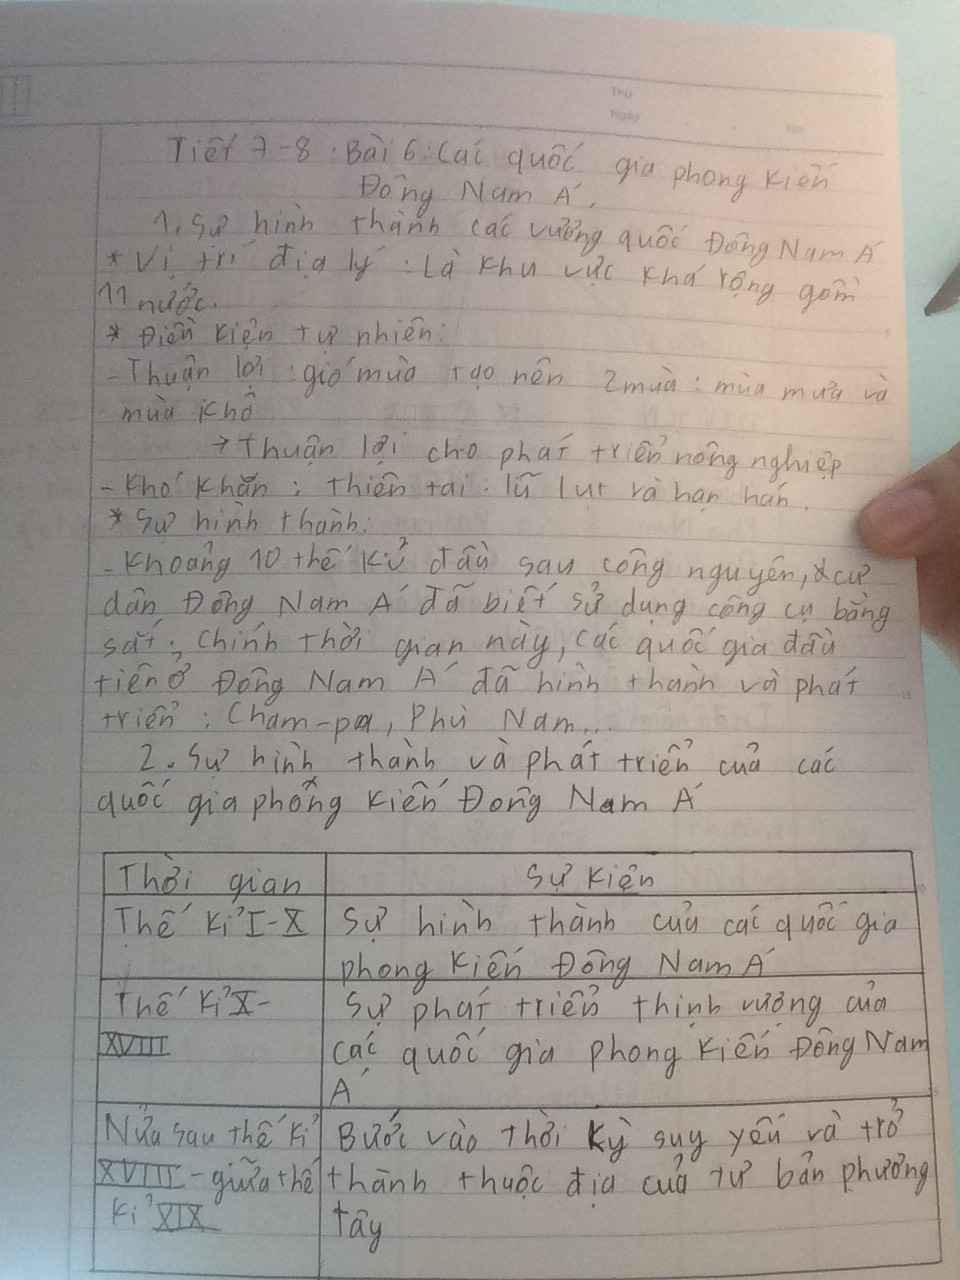 Thứ
Ngày
Tiết 7-8: Bài 6: Các quốc gia phong kiến
Đông Nam Á.
1. Sự hình thành các vương quốc Đông Nam Á
* Vị trí địa lý: Là khu vực khá rộng gồm
11 nước.
* Điều kiện tự nhiên:
- Thuận lợi: gió mùa tạo nên 2 mùa: mùa mưa và
mùa khô
→ thuận lợi cho phát triển nông nghiệp
- Khó khăn: thiên tai: lũ lụt và hạn hán.
* Sự hình thành:
- Khoảng 10 thế kỷ đầu sau công nguyên, cư
dân Đông Nam Á đã biết sử dụng công cụ bằng
sắt; chính thời gian này, các quốc gia đầu
tiên ở Đông Nam Á đã hình thành và phát
triển: Cham-pa, Phù Nam...
2. Sự hình thành và phát triển của các
quốc gia phong kiến Đong Nam Á
Thời gian Sự kiện
Thế kỉ I-X Sự hình thành của các quốc gia
phong kiến Đông Nam Á
Thế kỉ X- Sự phát triển thịnh vương của
XVIII các quốc gia phong kiến Đông Nam
Á
Nửa sau thế kỉ Bước vào thời kỳ suy yếu và trở
XVIII - giữa thế thành thuộc địa của tư bản phương
kỉ XIX tây